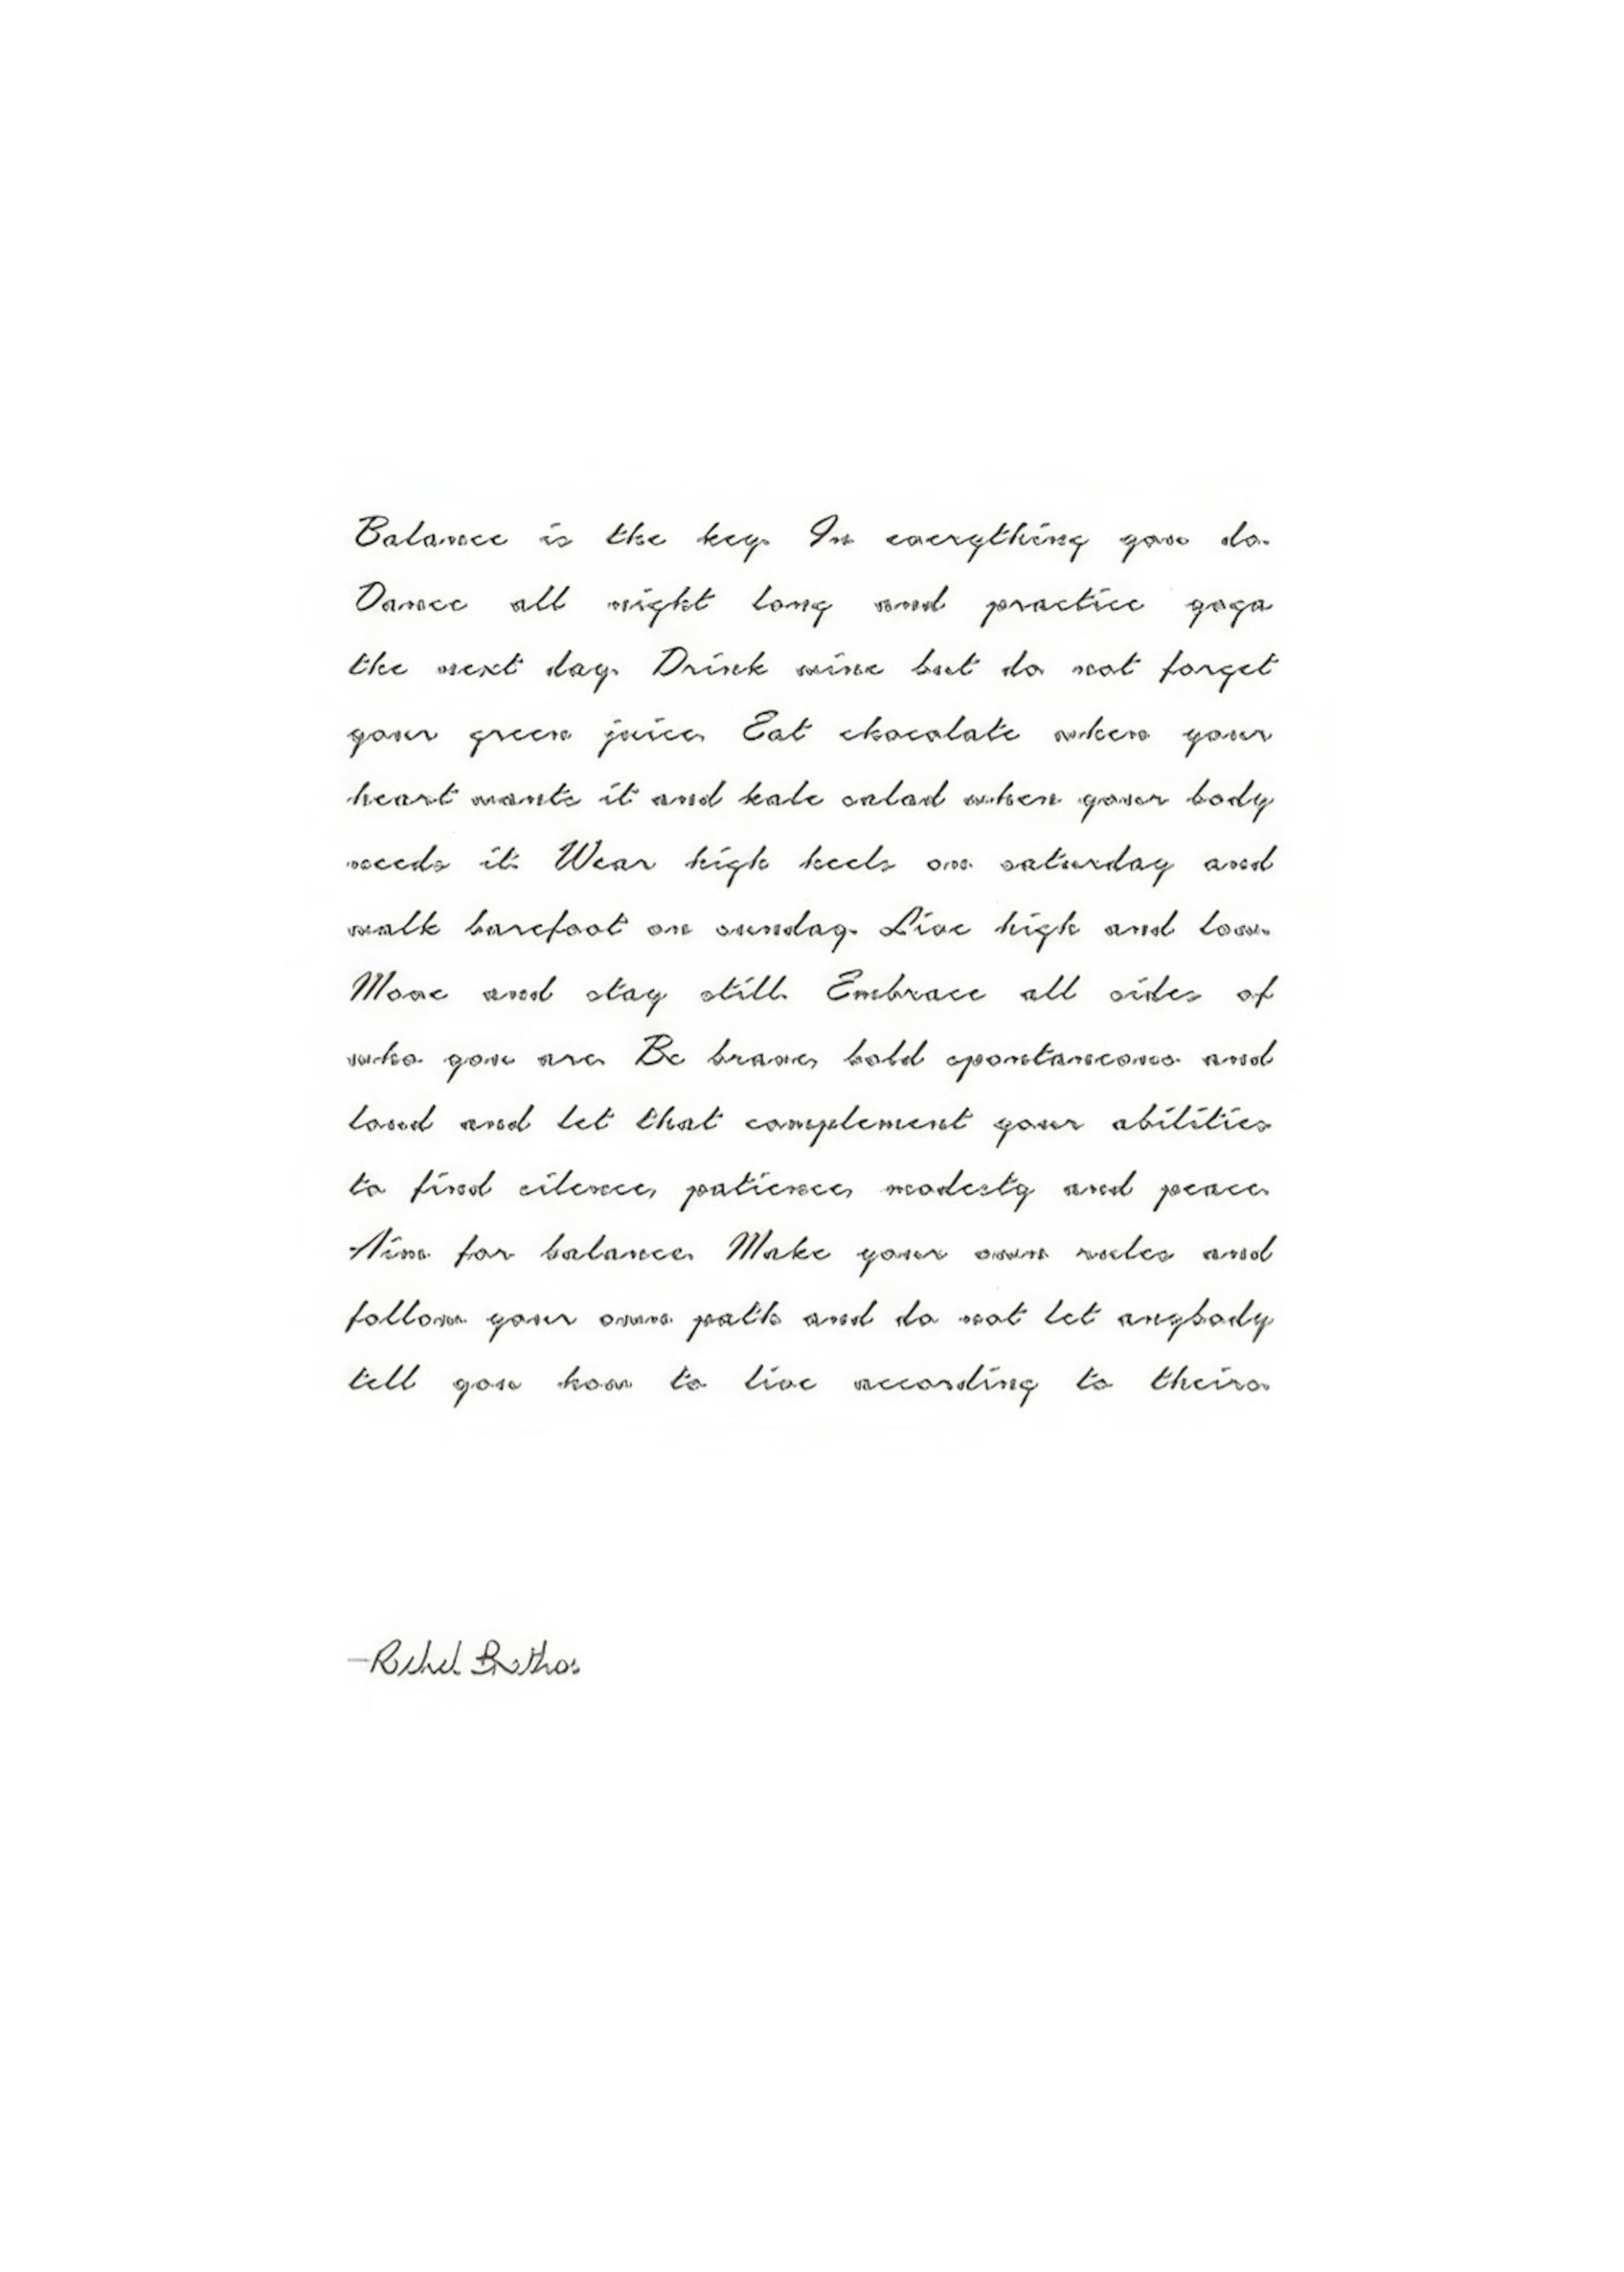 Balance is the key. In everything you do.
Dance all night long and practice yoga
the next day. Drink wine but do not forget
your green juice. Eat chocolate when your
heart wants it and kale salad when your body
needs it. Wear high heels on saturday and
walk barefoot on sunday. Live high and low.
Move and stay still. Embrace all sides of
who you are. Be brave, bold spontaneous and
loud and let that complement your abilities
to find silence, patience, modesty and peace.
Aim for balance. Make your own rules and
follow your own path and do not let anybody
tell you how to live according to theirs.
—Rachel Brathen